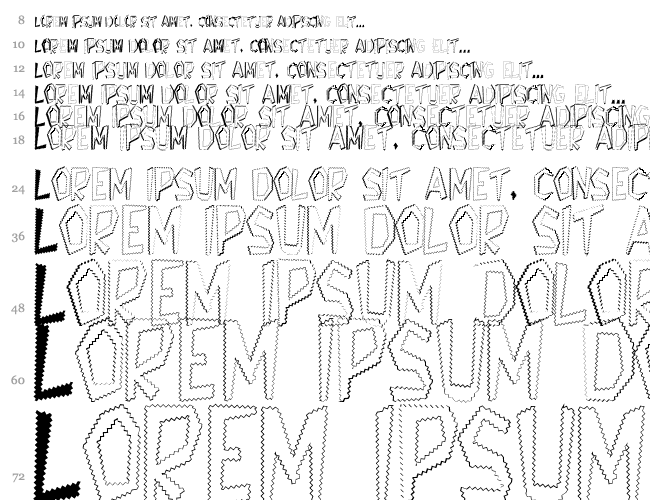 8 LOREM IPSUM DOLOR SIT AMET, CONSECTETUER ADIPISCING ELIT...
10 LOREM IPSUM DOLOR SIT AMET, CONSECTETUER ADIPISCING ELIT...
12 LOREM IPSUM DOLOR SIT AMET, CONSECTETUER ADIPISCING ELIT...
14 LOREM IPSUM DOLOR SIT AMET, CONSECTETUER ADIPISCING ELIT...
16 LOREM IPSUM DOLOR SIT AMET, CONSECTETUER ADIPISCING
18 LOREM IPSUM DOLOR SIT AMET, CONSECTETUER ADIPI
24 LOREM IPSUM DOLOR SIT AMET, CONSEC
36 LOREM IPSUM DOLOR SIT A
48 LOREM IPSUM DOLOR
60 LOREM IPSUM DO
72 LOREM IPSUM